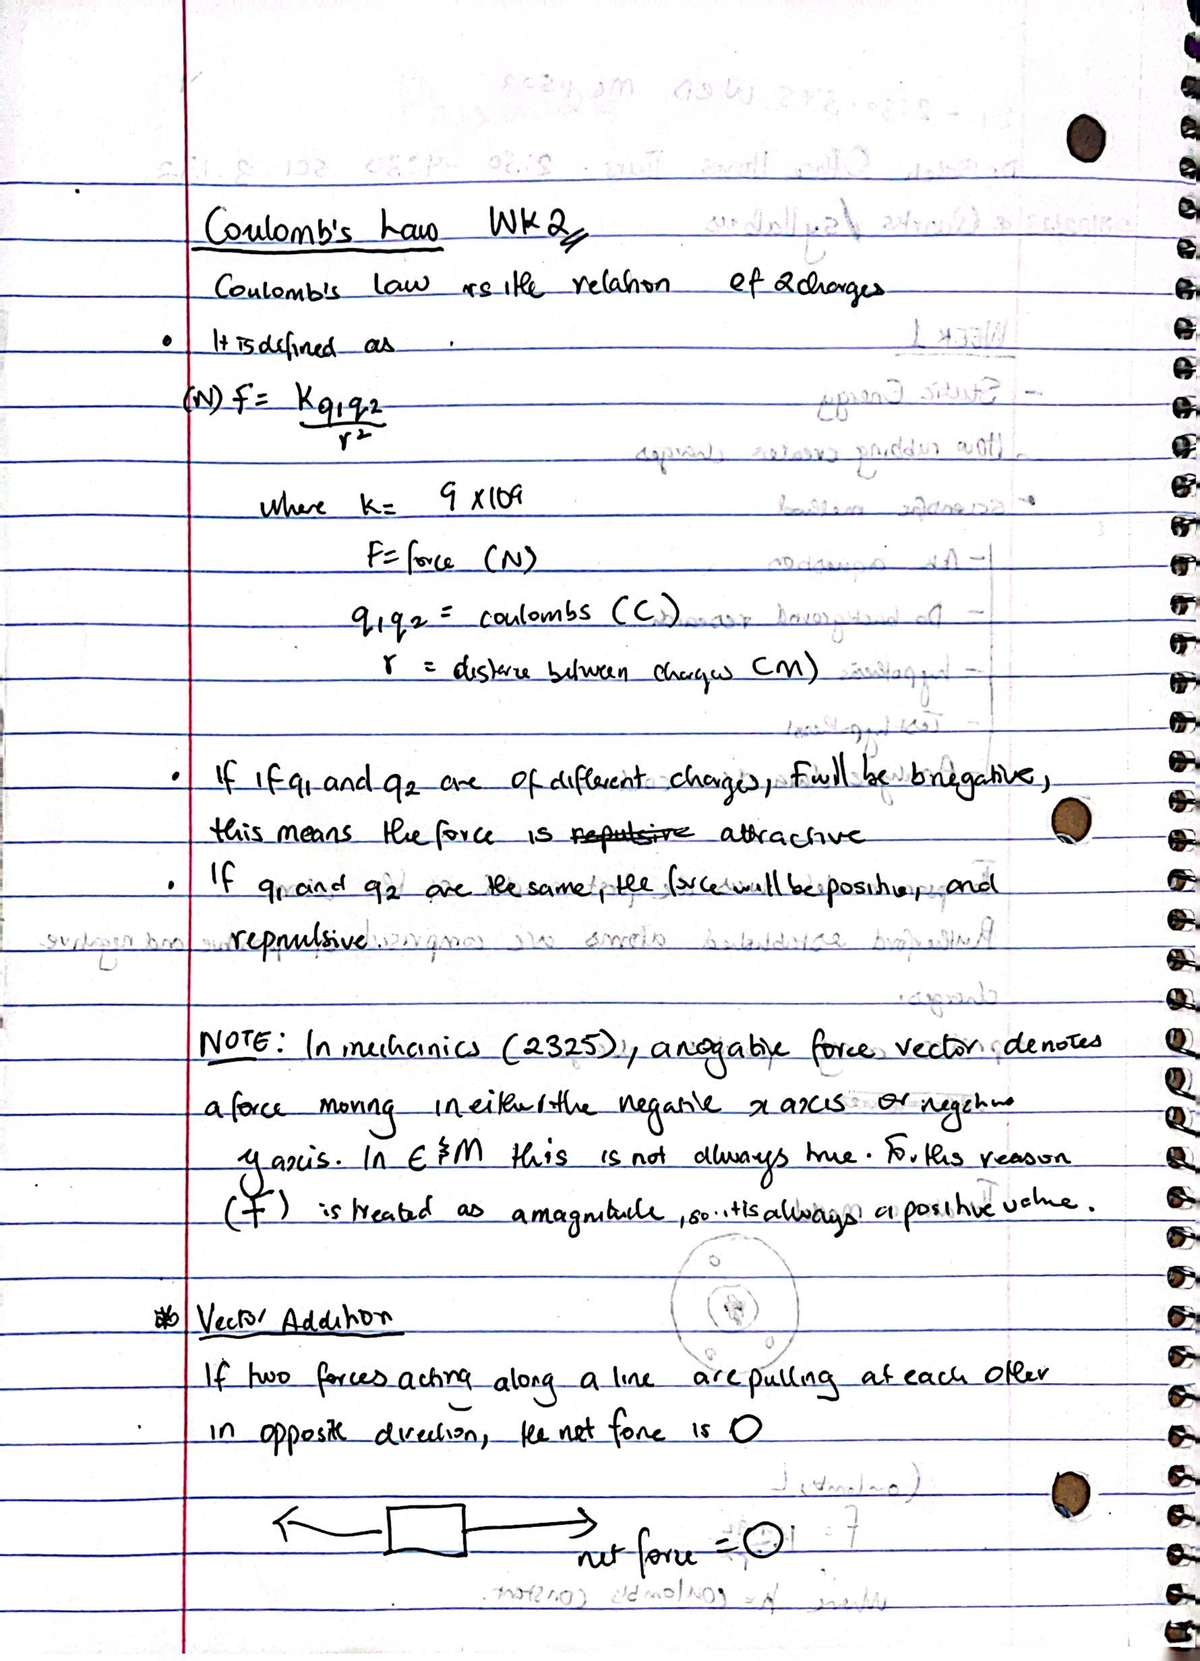 Coulomb's Law WK2
Coulomb's Law is the relation of 2 charges
• It is defined as
(N) F = Kq1q2
r2
where K = 9 x109
F = force (N)
q1q2 = coulombs (C)
r = distance between charges (m)
• If if q1 and q2 are of different charges, F will be bnegative,
this means the force is repulsive attractive
• If q1 and q2 are the same, the force will be positive, and
repnulsive.
NOTE: In mechanics (2325), a negative force vector denotes
a force moving in either the negative x axis or negative
y axis. In E & M this is not always true. For this reason
(F) is treated as a magnitude, so it is always a positive value.
Vector Addition
If two forces acting along a line are pulling at each other
in opposite direction, the net force is 0
net force = 0